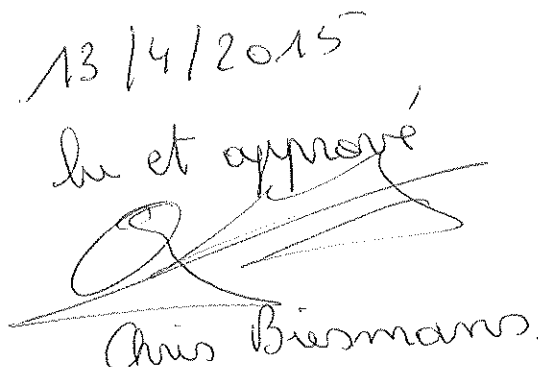 13/4/2015
lu et apprové
Chris Biesmans.